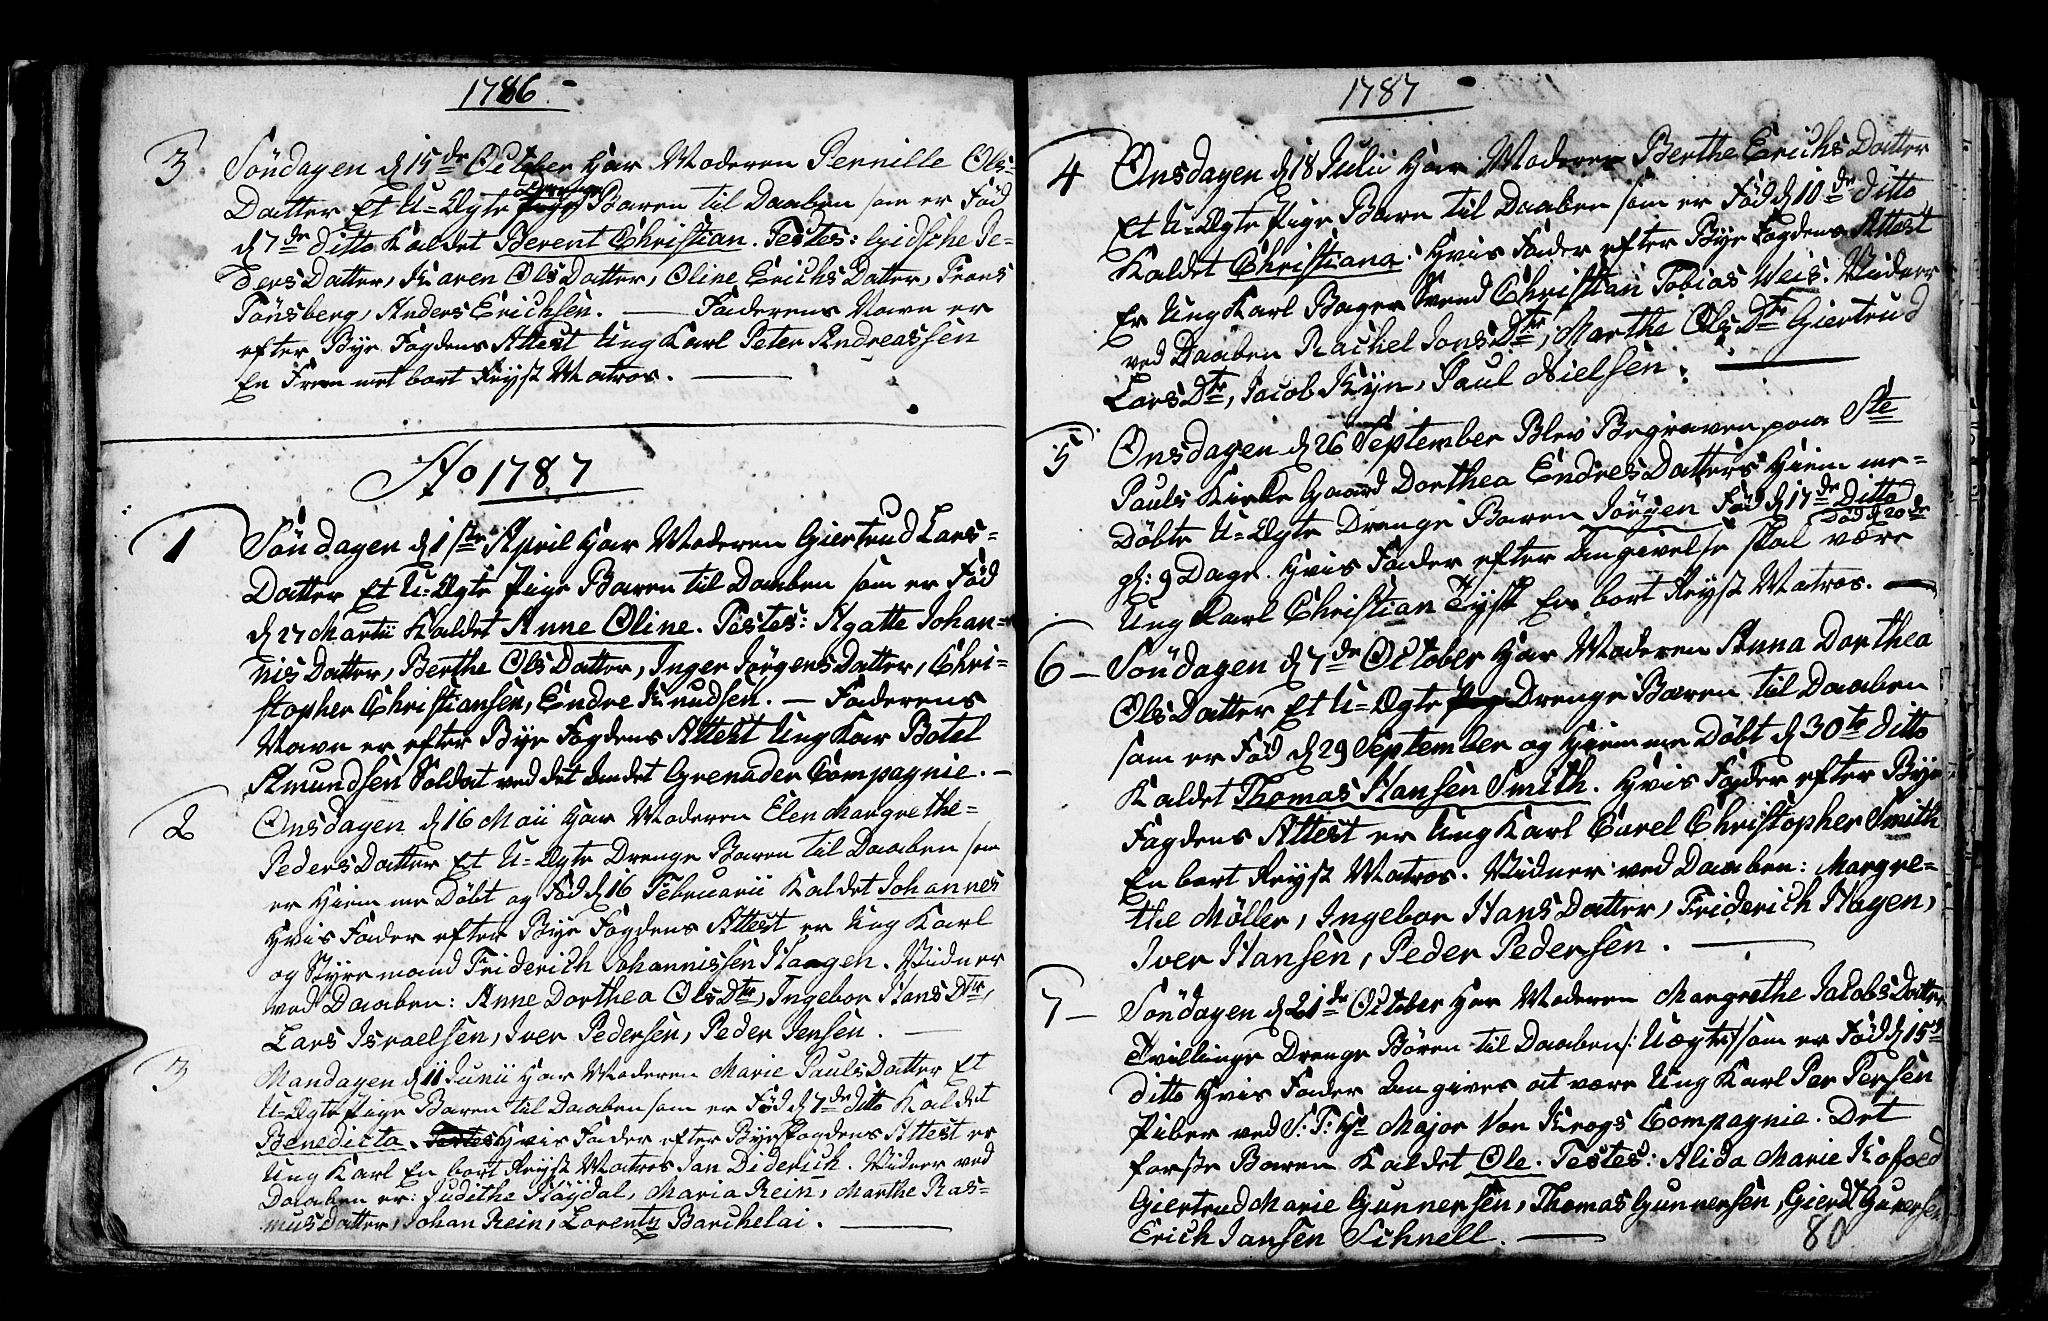 1786
3 Söndagen d 15de October Har Moderen Pernille Ols-
Datter Et U-Ægte Drenge Baren til Daaben som er Föd
d 7de ditto Kaldet Berent Christian. Testes: Gidsche Pe-
ders Datter, Karen Ols Datter, Oline Erichs Datter, Frans
Tönsberg, Anders Erichsen. — Faderens Navn er
efter Bye Fogdens Attest Ung Karl Peter Andreassen
En Fremmet bort Reyst Matros.
Ao 1787
1 Söndagen d 1ste April Har Moderen Giertrud Lars-
Datter Et U-Ægte Pige Baren til Daaben som er Föd
d 27 Martii Kaldet Anne Oline. Testes: Agatte Johan-
nis Datter, Berthe Ols Datter, Inger Jörgens Datter, Chri-
stopher Christiansen, Endre Knudsen. — Faderens
Navn er efter Bye Fogdens Attest Ung Kar Botel
Amundsen Soldat ved det Andet Grenader Compagnie. —
2 Onsdagen d 16 Maii Har Moderen Elen Margrethe-
Peders Datter Et U-Ægte Drenge Baren til Daaben som
er Hiemme Döbt og Föd d 16 Februarii Kaldet Johannes
Hvis Fader efter Bye Fogdens Attest er Ung Karl
og Styrmand Friderich Johannissen Haagen. Vidner
ved Daaben: Anne Dorthea Ols Dtr, Ingebor Hans Dtr,
Lars Israelsen, Iver Pedersen, Peder Jensen. —
3 Mandagen d 11 Junii Har Moderen Marie Pauls Datter Et
U-Ægte Pige Baren til Daaben som er Föd d 7de ditto Kaldet
Benedicta. Testes Hvis Fader efter Byefogdens Attest er
Ung Karl En bort Reyst Matros Jan Diderich. Vidner ved
Daaben er: Judithe Höydal, Maria Rein, Marthe Ras-
mus datter, Johan Rein, Lorentz Barchelai. —
1787
4 Onsdagen d 18 Julii Har Moderen Berthe Erichs Datter
Et U-Ægte Pige Barn til Daaben som er Föd d 10de ditto
Kaldet Christiana. Hvis Fader efter Bye Fogdens Attest
Er Ung Karl Bager Svend Christian Tobias Weis. Vidner
ved Daaben Rachel Jons Dtr, Marthe Ols Dtr Giertrud
Lars Dtr, Jacob Kyn, Paul Nielsen. —
5 Onsdagen d 26 September Blev Begraven paa Ste
Pauls Kirke Gaard Dorthea Endres Datters Hiemme-
Döbte U-Ægte Drenge Baren Jörgen Föd d 17de Ditto
Död d 20de
gl: 9 Dage. Hvis Fader efter Angivelse skal være
Ung Karl Christian Tysk En bort Reyst Matros. —
6 — Söndagen d 7de October Har Moderen Anna Dorthea
Ols Datter Et U-Ægte Pig Drenge Baren til Daaben
som er Föd d 29 September og Hiemme Döbt d 30te ditto
Kaldet Thomas Hansen Smith. Hvis Fader efter Bye
Fogdens Attest er Ung Karl Carel Christopher Smith
En bort Reyst Matros. Vidner ved Daaben: Margre-
the Möller, Ingebor Hans Datter, Friderich Hagen,
Iver Hansen, Peder Pedersen. —
7 — Söndagen d 21de October Har Moderen Margrethe Jacobs Datter
Tvillinge Drenge Bören til Daaben /: Uægte :/ som er Föd d 15de
ditto Hvis Fader Angives at være Ung Karl Per Persen
Piber ved S: T: Hr Major Von Krogs Compagnie. Det
forste Baren Kaldet Ole. Testes: Alida Marie Kofoed
Giertrud Marie Gunnersen, Thomas Gunnersen, Gierdt Gunersen
Erich Jansen Schnell. —
80